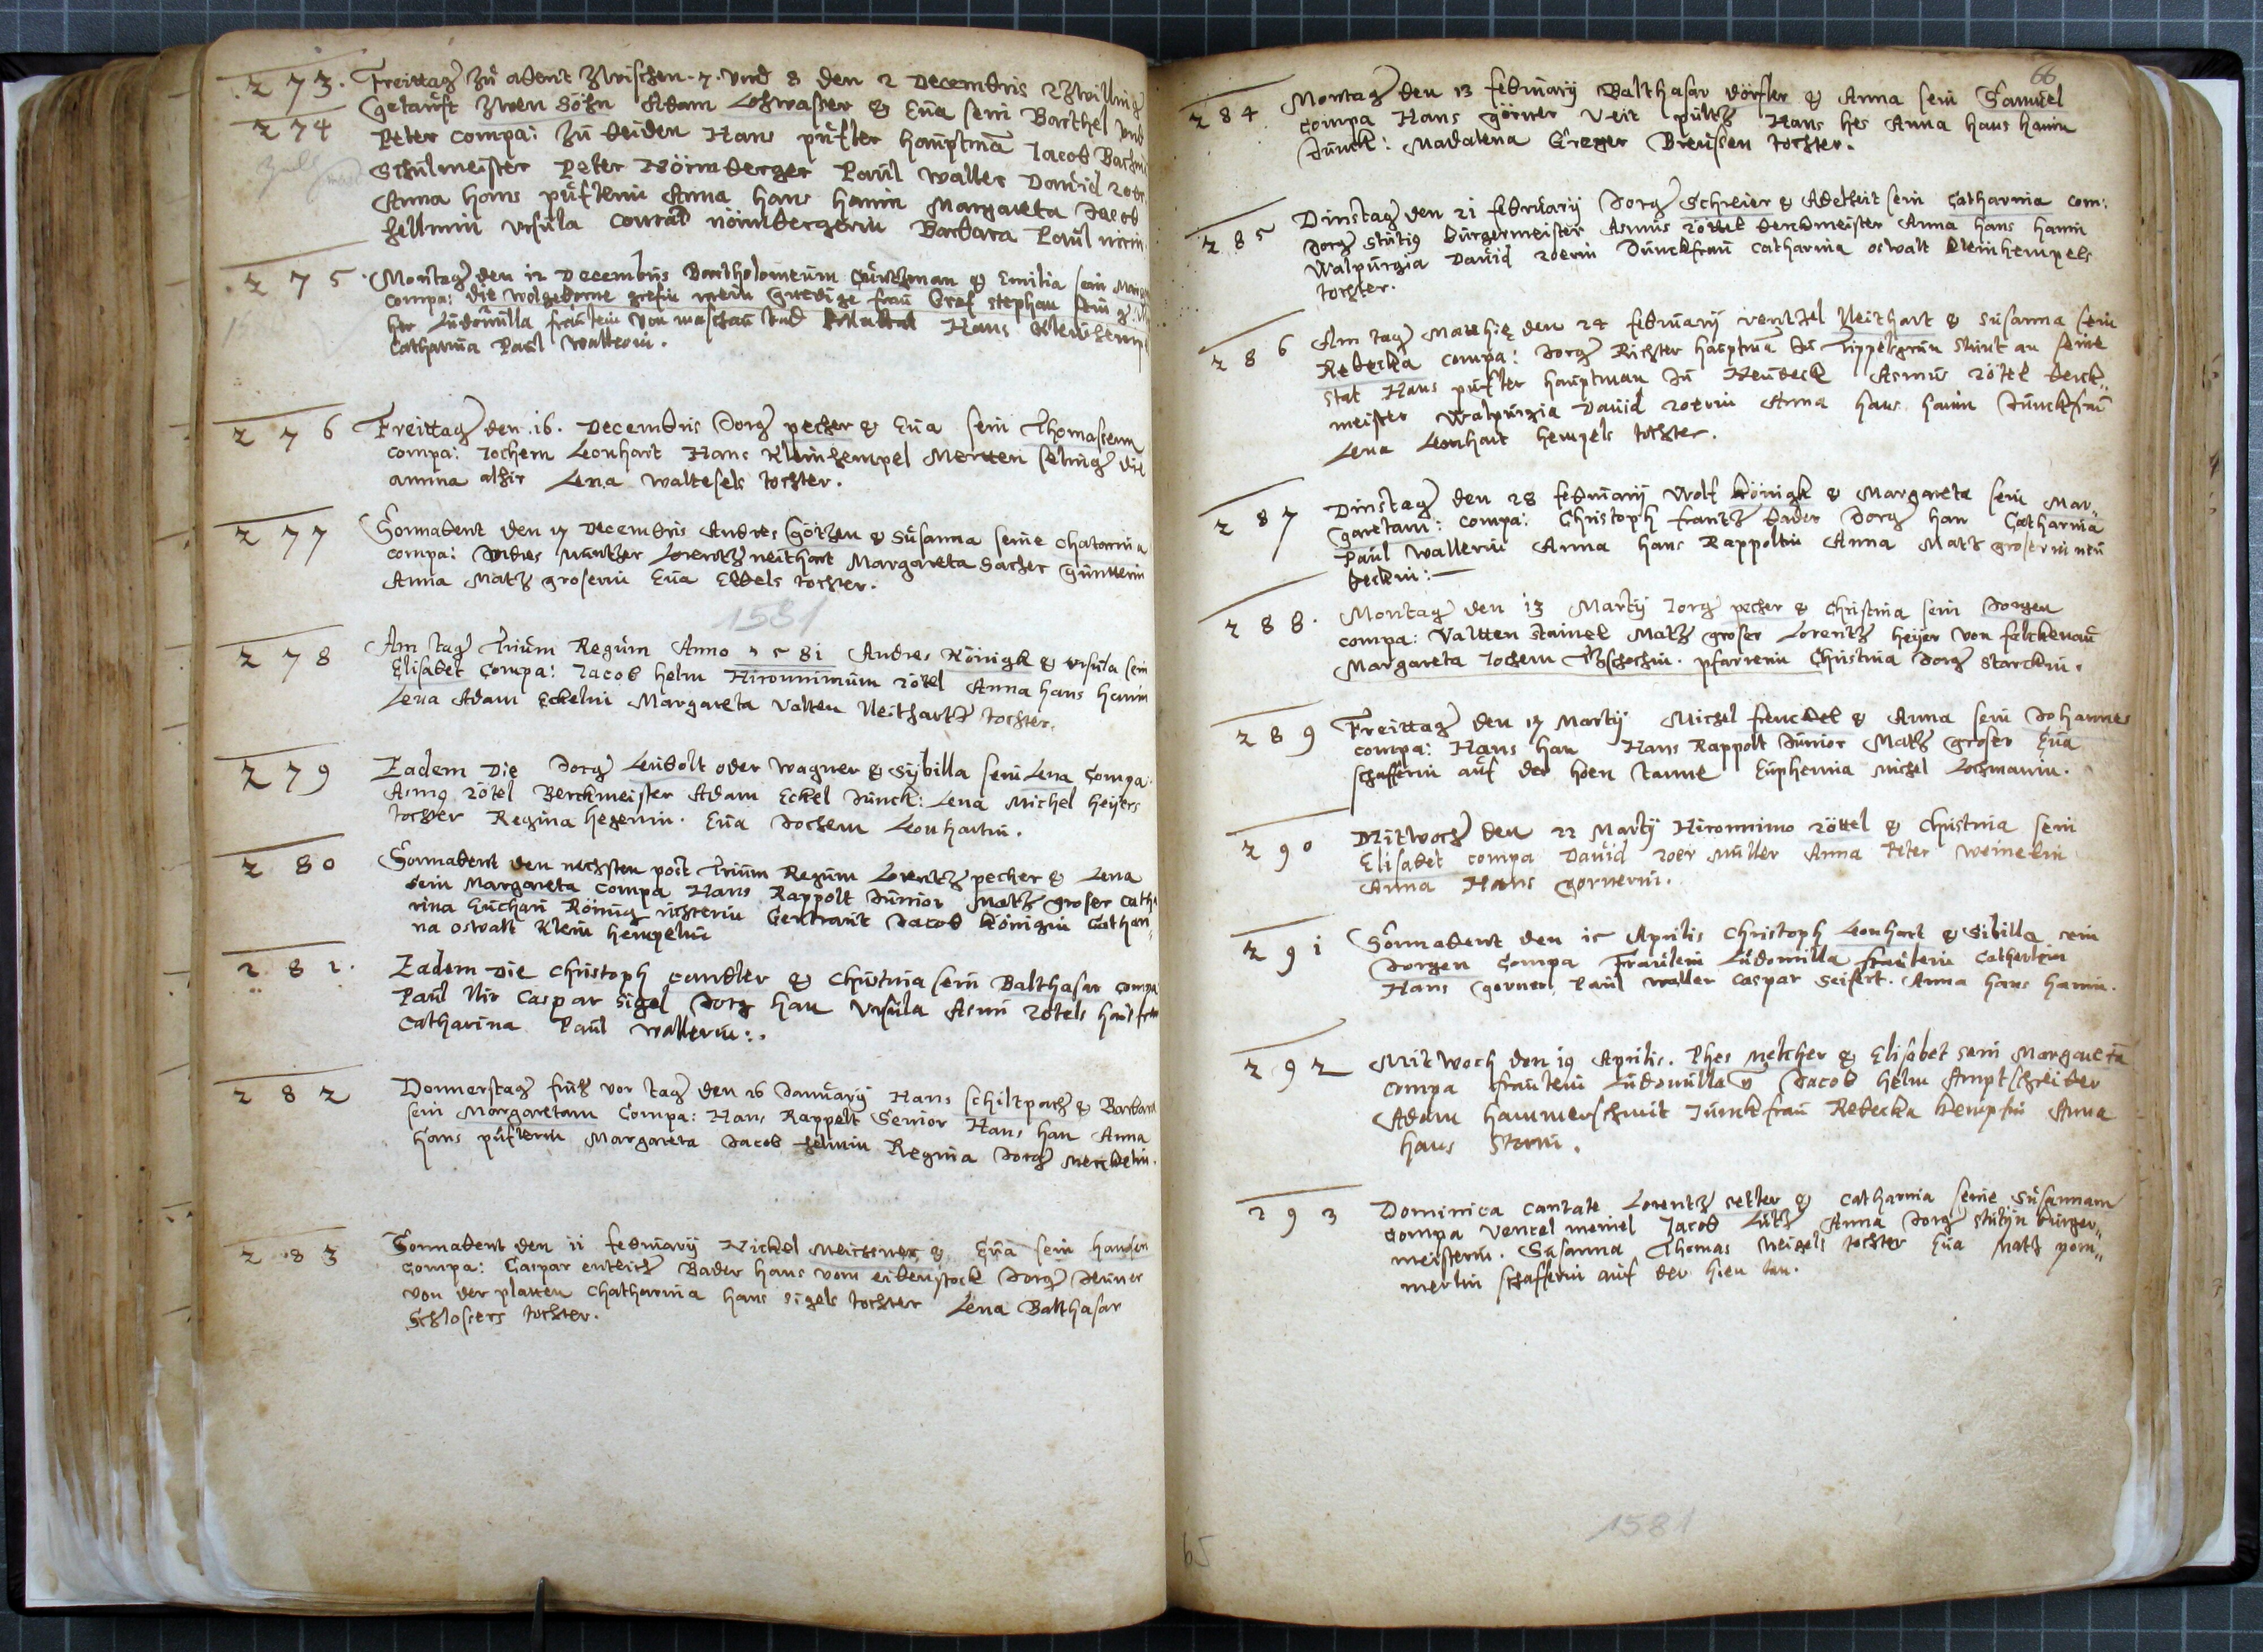 273. Freittag zu abent zwischen .7. und 8 den 2 Decembris 2 zwilling
274 getaufft zwen Söhn Adam Loswasser & Eua sein Barthel und
Peter compa: zu beiden Hans püfler hauptmā Jacob
Schulmeister Peter Nörmberger Paul waller Dauid
Anna hans püflerin Anna hans hanin Margareta Jacob
helmin ursula Conrad nörmbergerin Barbara Paul
275 Montag den 12 Decembris Bartholomeum & Emilia sein
compa: die wolgeborne grefin mein gnedige frau Graf stephan sein
her Ludomilla freulein von maschau und Hans
Catharina Paul wallerin.
276 Freittag den .16. Decembris Jorg pecher & Eua sein Thomassenn
compa: Jochem Leonhart Hans Kleinhempel Merten die
amma alhir Lena waltesels tochter.
277 Sonnabent den 17 Decembris Andres Götzen & Susanna seine Chatarina
compa: Andres Lorentz neithart Margareta bacher güntterin
Anna Matz groserin Eua Ebbels tochter.
1581
278 Am tag Trium Regum Anno 1581 Andres Königk & ursula sein
Elisabet Compa: Jacob helm Hironnimum rötel Anna hans hanin
Lena Adam Eckelin Margareta valten Neithartz tochter.
279 Eadem Die Jorg Leubolt oder wagner & Sybilla sein Lena Compa:
Asmq rötel Berckmeister Adam Eckel Junck: Lena Michel heyers
tochter Regina hegerin. Eua Jochem Leonhartin.
280 Sonnabent den nechsten post Trium Regum Lorentz pecher & Lena
sein Margareta Compa Hans Rappolt Junior Matz groser Catha
rina Euchari König richterin Gertraut Jacob Königin Cathari
na oswalt klein hempelin
281. Eadem Die Christoph candler & Christina sein Balthasar compa
Paul Nir Caspar Sigel Jorg han Ursula Asmi rötels
Catharina Paul wallerin:.
282 Donnerstag früh vor tag den 26 January Hans schiltpach & Barbara
sein Margaretam Compa: Hans Rappolt Senior Hans han Anna
hans püflerin Margareta Jacob helmin Regina Jorg merckelin.
283 Sonnabent den 11 february Nickel Meissner & Eua sein hansen
Compa: Caspar enterich Bader hans vom eibenstock Jorg
von der platten Chatharina hans sigels tochter Lena Balthasar
Schlossers tochter.
65
66
284 Montag den 13 february Balthasar dörfler & Anna sein Samuel
Compa Hans görner Veit pültz Hans hes Anna hans hanin
Junck: Madalena Greger Breussen tochter.
285 Dinstag den 21 february Jorg Schreier & Adelheit sein Catharina com:
Jorg stütig bürgermeister Asmus röttel berckmeister Anna hans hanin
Walpurgia Dauid roerin Junckfrau Catharina oswalt kleinhempels
tochter.
286 Am tag Matthię den 24 february ventzel Neithart & susanna sein
Rebecka compa: Jorg Richter hauptmā zu Tippelsgrün stunt an seine
stat Hans püfler hauptman zu Neudeck Asmus rötel berck„
meister Walpurgia Dauid roerin Anna hans hanin Junckfrau
Lena Leonhart hempels tochter.
287 Dinstag den 28 february Wolf Königk & Margareta sein Mar„
garetam: compa: Christoph frantz bader Jorg han Catharina
Paul wallerin Anna hans Rappoltin Anna Matz groserin neu
beckin:
288. Montag den 13 Marty Jorg pecher & Christina sein Jorgen
compa: Valtten stainel Matz groser Lorentz heyer von falckenau
Margareta Jochem pfarrerin Christina Jorg starckin.
289 Freittag den 17 Marty Michel frenckel & Anna sein Johannes
compa: Hans han Hans Rappolt Junior Matz groser Eua
schafferin auf der hoen tanne Euphemia michel Lochmanin.
290 Mitwoch den 22 Marty Hironnimo röttel & Christina sein
Elisabet compa Dauid roer müller Anna Peter weinelin
Anna Hans gornerin.
291 Sonnabent den 15 Aprilis Christoph Leonhart & Sibilla sein
Jorgen Compa Freulein Ludomilla freulein Catherlein
Hans gorner Paul waller Caspar Seifert. Anna hans hanin.
292 Mitwoch den 19 Aprilis. Phes melcher & Elisabet sein Margareta
Compa freulein Ludomilla Jacob helm Amptschreiber
Adam hammerschmit Junckfrau Rebecka kempfin Anna
hans Sternin.
293 Dominica Cantate Lorentz setler & Catharina seine Susannam
Compa Vencel meinel Jacob Lutz Anna Jorg stütyn bürger„
meisterin. Susanna Thomas Weigels tochter Eua Matz pom„
merlin schafferin auf der hoen tan.
1581